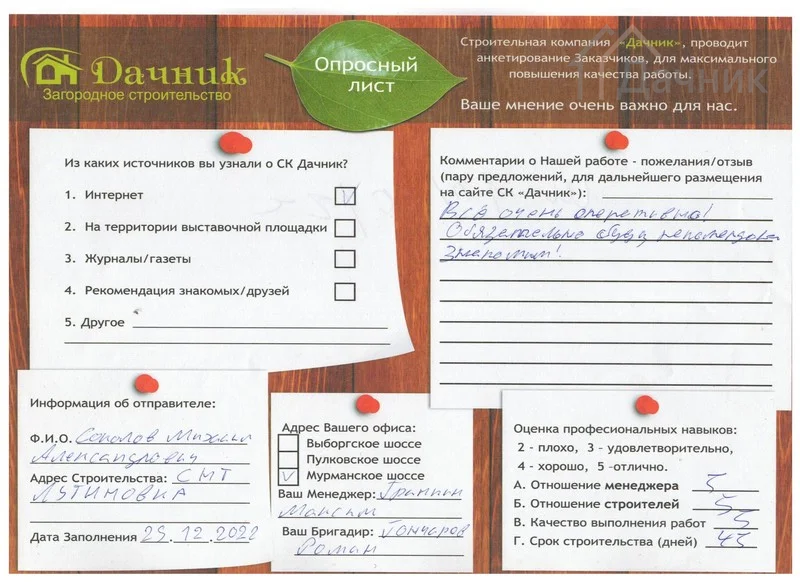 Дачник
Загородное строительство
Опросный
лист
Строительная компания «Дачник», проводит
анкетирование Заказчиков, для максимального
повышения качества работы.
Ваше мнение очень важно для нас.
Дачник
Из каких источников вы узнали о СК Дачник?
1. Интернет V
2. На территории выставочной площадки
3. Журналы/газеты
4. Рекомендация знакомых/друзей
5. Другое
Комментарии о Нашей работе - пожелания/отзыв
(пару предложений, для дальнейшего размещения
на сайте СК «Дачник»):
Всё очень оперативно!
Обязательно буду рекомендовать
Знакомым!
Информация об отправителе:
Ф.И.О. Соколов Михаил
Александрович
Адрес Строительства: СНТ
Лутиновка
Дата Заполнения 25.12.2022
Адрес Вашего офиса:
Выборгское шоссе
Пулковское шоссе
V Мурманское шоссе
Ваш Менеджер:
Максим
Ваш Бригадир: Гончаров
Роман
Оценка профессиональных навыков:
2 - плохо, 3 - удовлетворительно,
4 - хорошо, 5 -отлично.
А. Отношение менеджера 5
Б. Отношение строителей 5
В. Качество выполнения работ 5
Г. Срок строительства (дней) 45